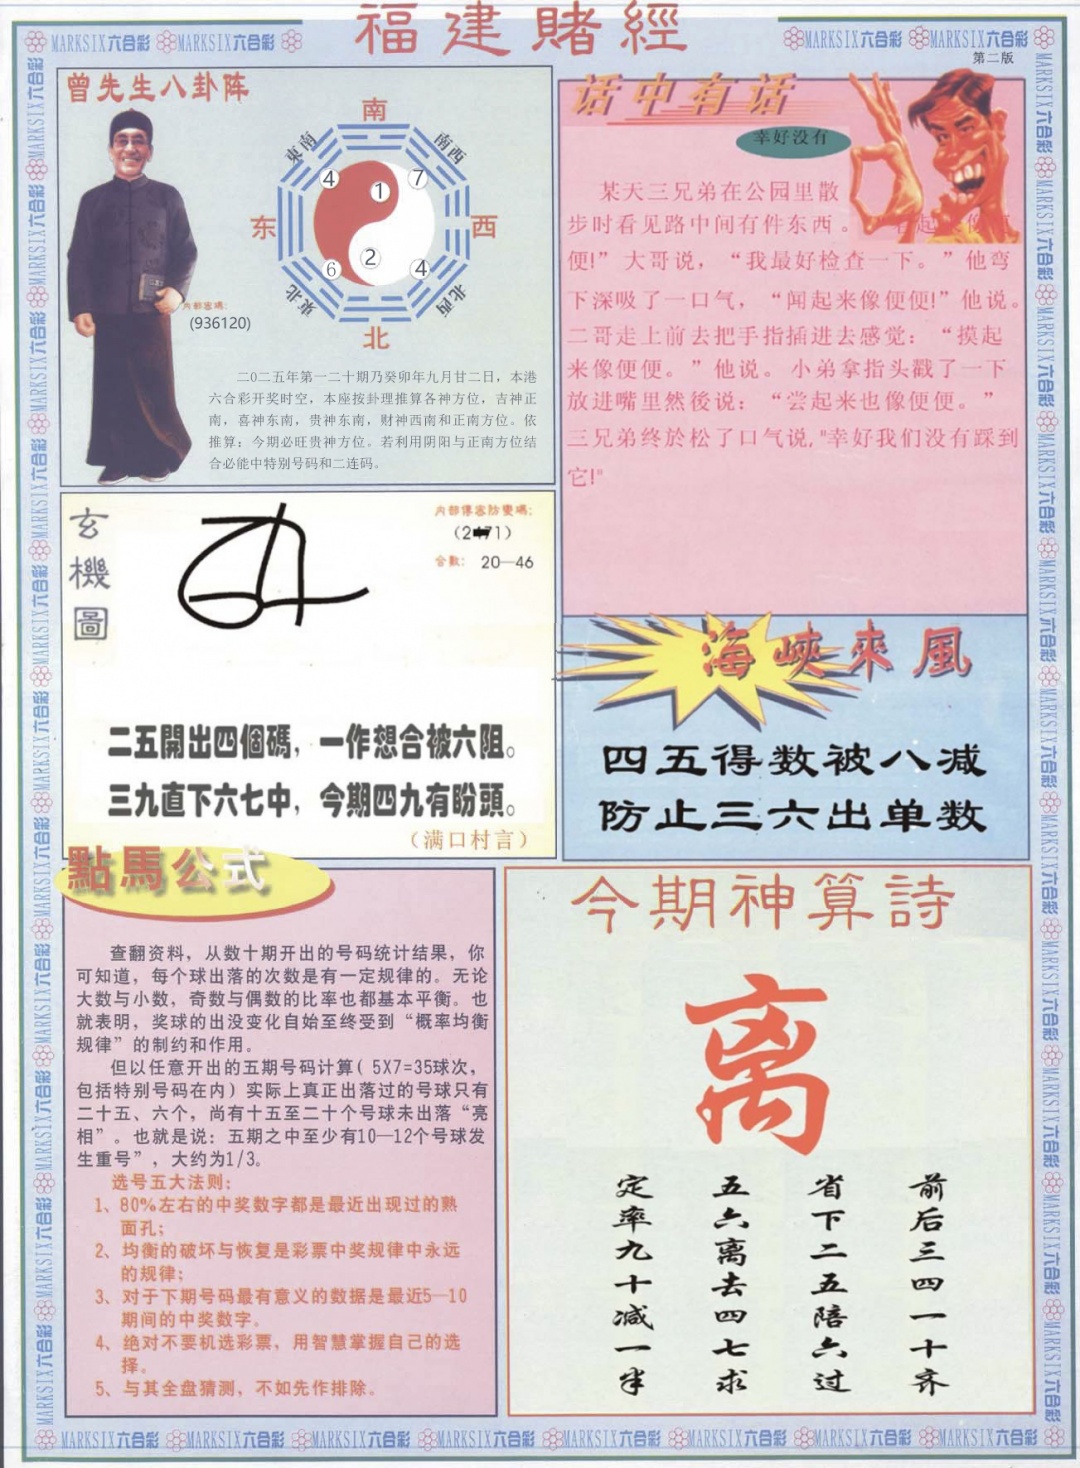 福建賭經
MARKSIX六合彩 MARKSIX六合彩
MARKSIX六合彩 MARKSIX六合彩
第二版
曾先生八卦阵
南
東南
南西
4
1
7
东
西
6
2
4
東北
北西
北
内部密碼:
(936120)
二〇二五年第一二十期乃癸卯年九月廿二日，本港
六合彩开奖时空，本座按卦理推算各神方位，吉神正
南，喜神东南，贵神东南，财神西南和正南方位。依
推算：今期必旺贵神方位。若利用阴阳与正南方位结
合必能中特别号码和二连码。
话中有话
幸好没有
某天三兄弟在公园里散
步时看见路中间有件东西。"看起来像便
便!” 大哥说，“我最好检查一下。”他弯
下深吸了一口气，“闻起来像便便!”他说。
二哥走上前去把手指插进去感觉：“摸起
来像便便。”他说。小弟拿指头戳了一下
放进嘴里然後说：“尝起来也像便便。”
三兄弟终於松了口气说,"幸好我们没有踩到
它!"
玄機圖
内部傳密防變碼:
(2 71)
合數: 20—46
二五開出四個碼，一作想合被六阻。
三九直下六七中，今期四九有盼頭。
（满口村言）
海峽來風
四五得数被八减
防止三六出单数
點馬公式
查翻资料，从数十期开出的号码统计结果，你
可知道，每个球出落的次数是有一定规律的。无论
大数与小数，奇数与偶数的比率也都基本平衡。也
就表明，奖球的出没变化自始至终受到“概率均衡
规律”的制约和作用。
但以任意开出的五期号码计算( 5X7=35球次，
包括特别号码在内）实际上真正出落过的号球只有
二十五、六个，尚有十五至二十个号球未出落“亮
相”。也就是说：五期之中至少有10—12个号球发
生重号”，大约为1/3。
选号五大法则：
1、80%左右的中奖数字都是最近出现过的熟
面孔；
2、均衡的破坏与恢复是彩票中奖规律中永远
的规律；
3、对于下期号码最有意义的数据是最近5—10
期间的中奖数字。
4、绝对不要机选彩票，用智慧掌握自己的选
择。
5、与其全盘猜测，不如先作排除。
今期神算詩
离
前后三四一十齐
省下二五陪六过
五六离去四七求
定率九十减一半
MARKSIX六合彩 MARKSIX六合彩 MARKSIX六合彩 MARKSIX六合彩 MARKSIX六合彩 MARKSIX六合彩 MARKSIX六合彩 MARKSIX六合彩